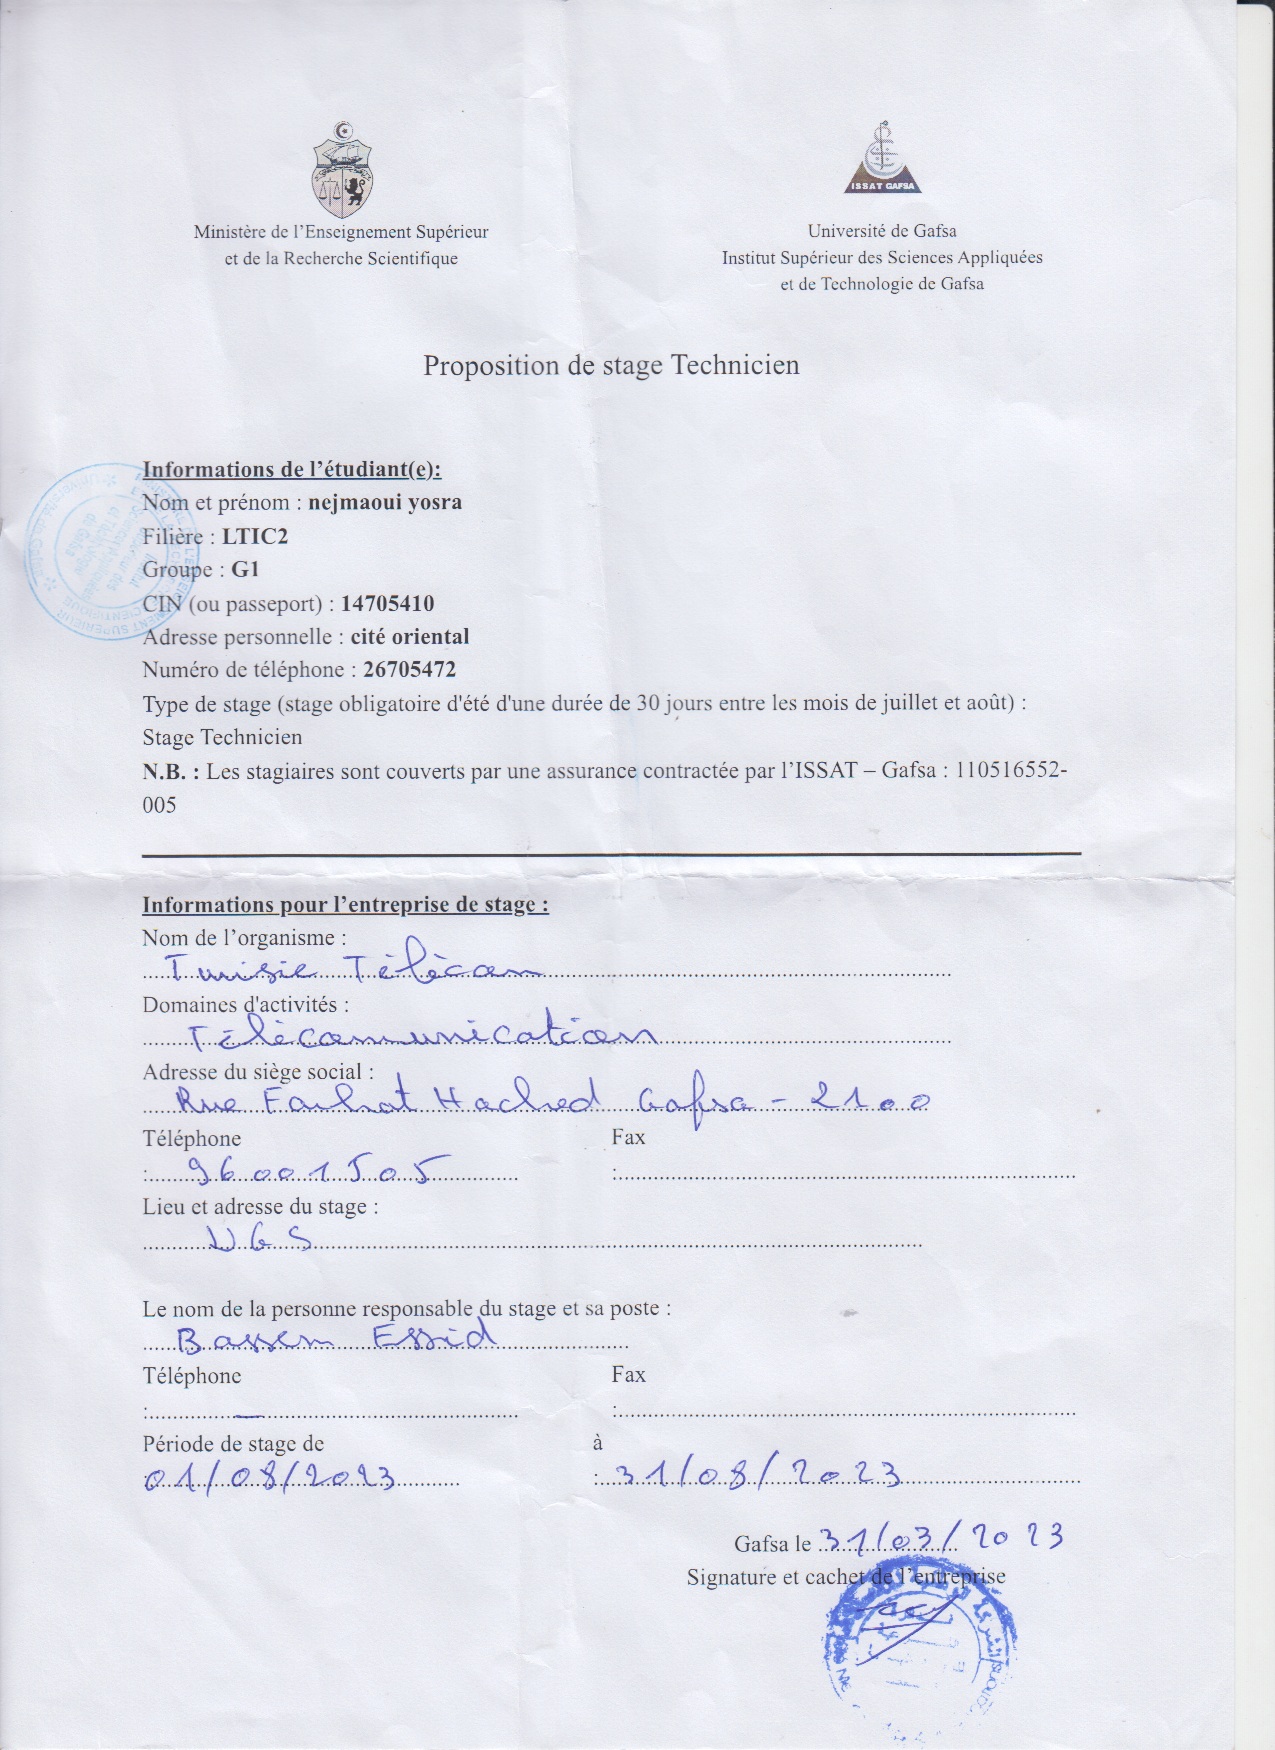 ISSAT GAFSA
Ministère de l'Enseignement Supérieur
et de la Recherche Scientifique
Université de Gafsa
Institut Supérieur des Sciences Appliquées
et de Technologie de Gafsa
Proposition de stage Technicien
Informations de l'étudiant(e):
Nom et prénom : nejmaoui yosra
Filière : LTIC2
Groupe : G1
CIN (ou passeport) : 14705410
Adresse personnelle : cité oriental
Numéro de téléphone : 26705472
Type de stage (stage obligatoire d'été d'une durée de 30 jours entre les mois de juillet et août) :
Stage Technicien
N.B. : Les stagiaires sont couverts par une assurance contractée par l'ISSAT – Gafsa : 110516552-
005
Informations pour l'entreprise de stage :
Nom de l'organisme :
Tunisie Télécom
Domaines d'activités :
Télécommunication
Adresse du siège social :
Rue Farhat Hached Gafsa - 2100
Téléphone Fax
: 96001505 :
Lieu et adresse du stage :
UGS
Le nom de la personne responsable du stage et sa poste :
Bassem Essid
Téléphone Fax
: — :
Période de stage de à
: 01/08/2023 : 31/08/2023
Gafsa le 31/03/2023
Signature et cachet de l'entreprise